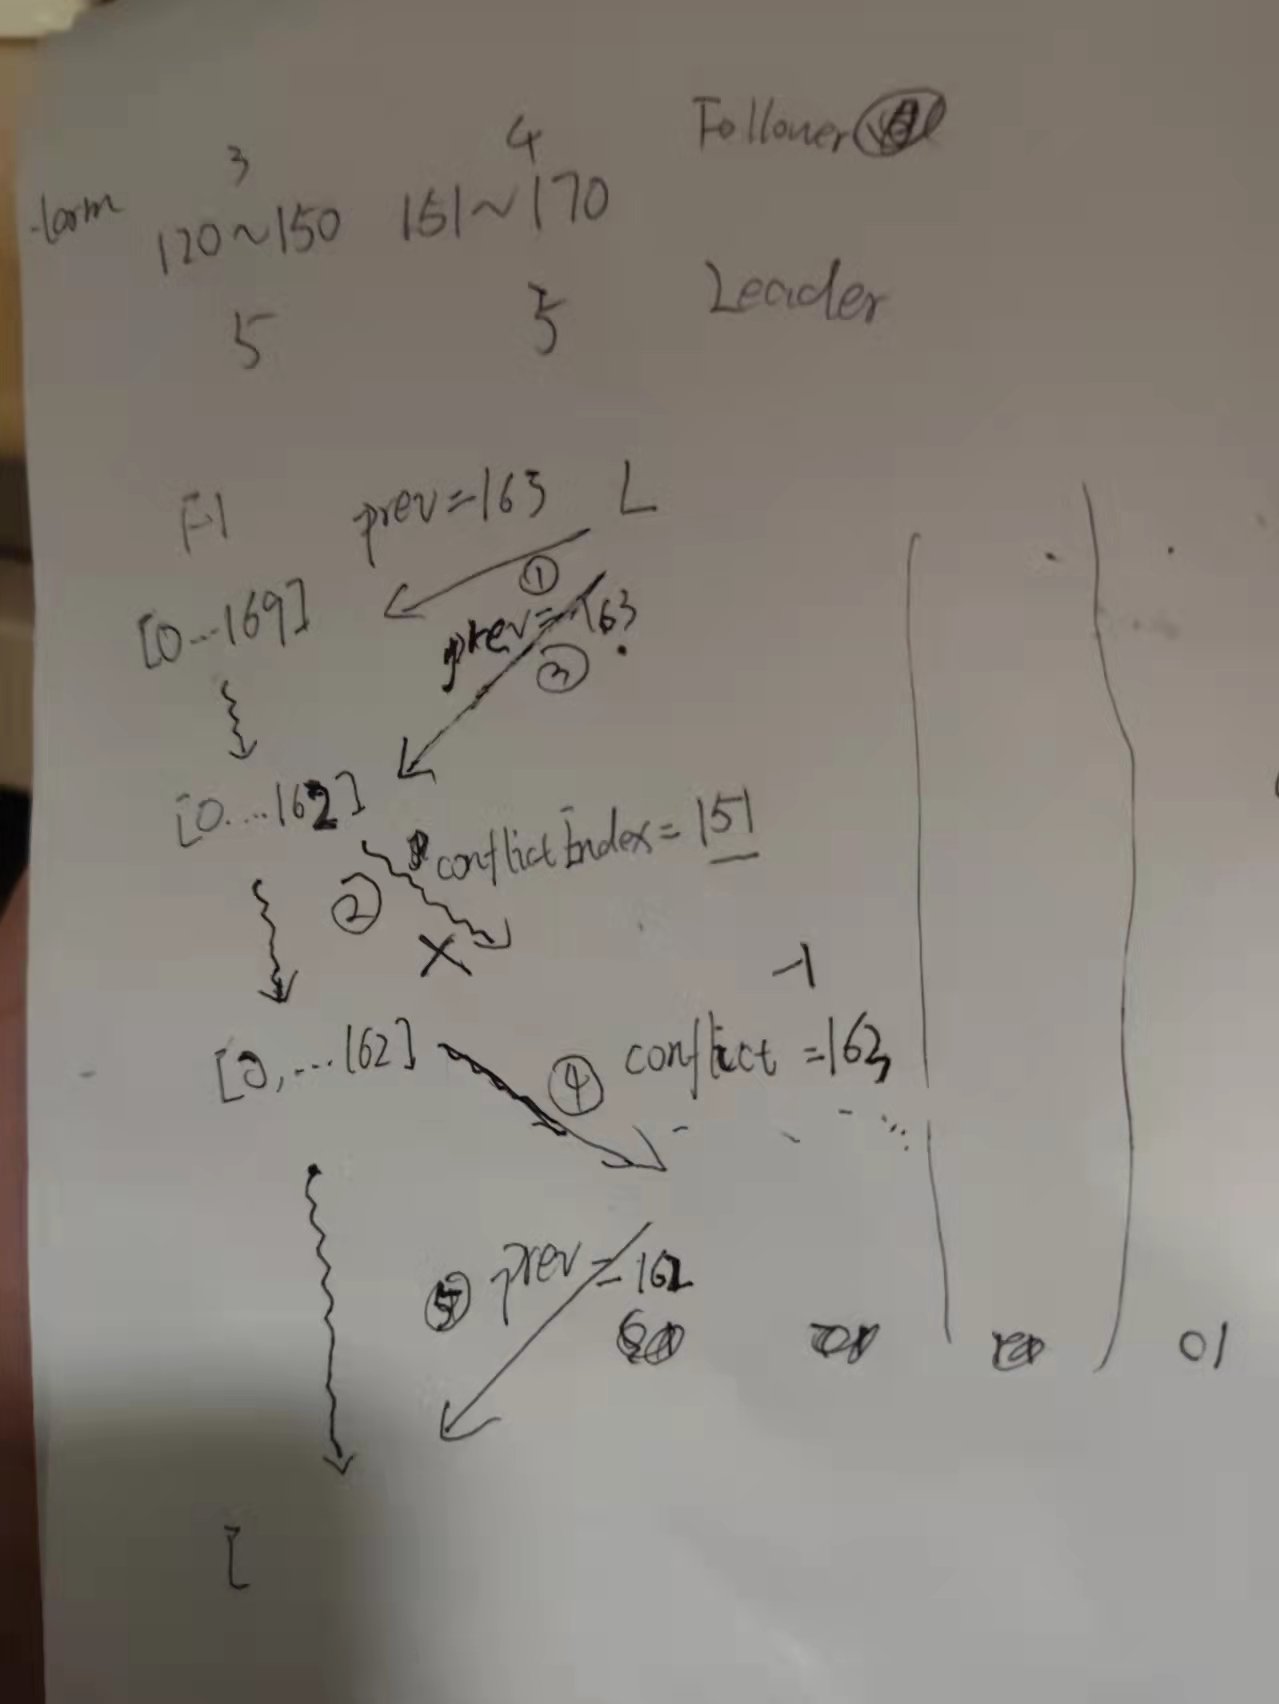 3 4 Follower
term 120~150 151~170
5 5 Leader
F1 prev=163 L
①
[0...169] prev=163
③
[0....162]
conflictIndex=151
②
X
-1
[0,...162] ④ conflict=163
⑤ prev=162
01
[